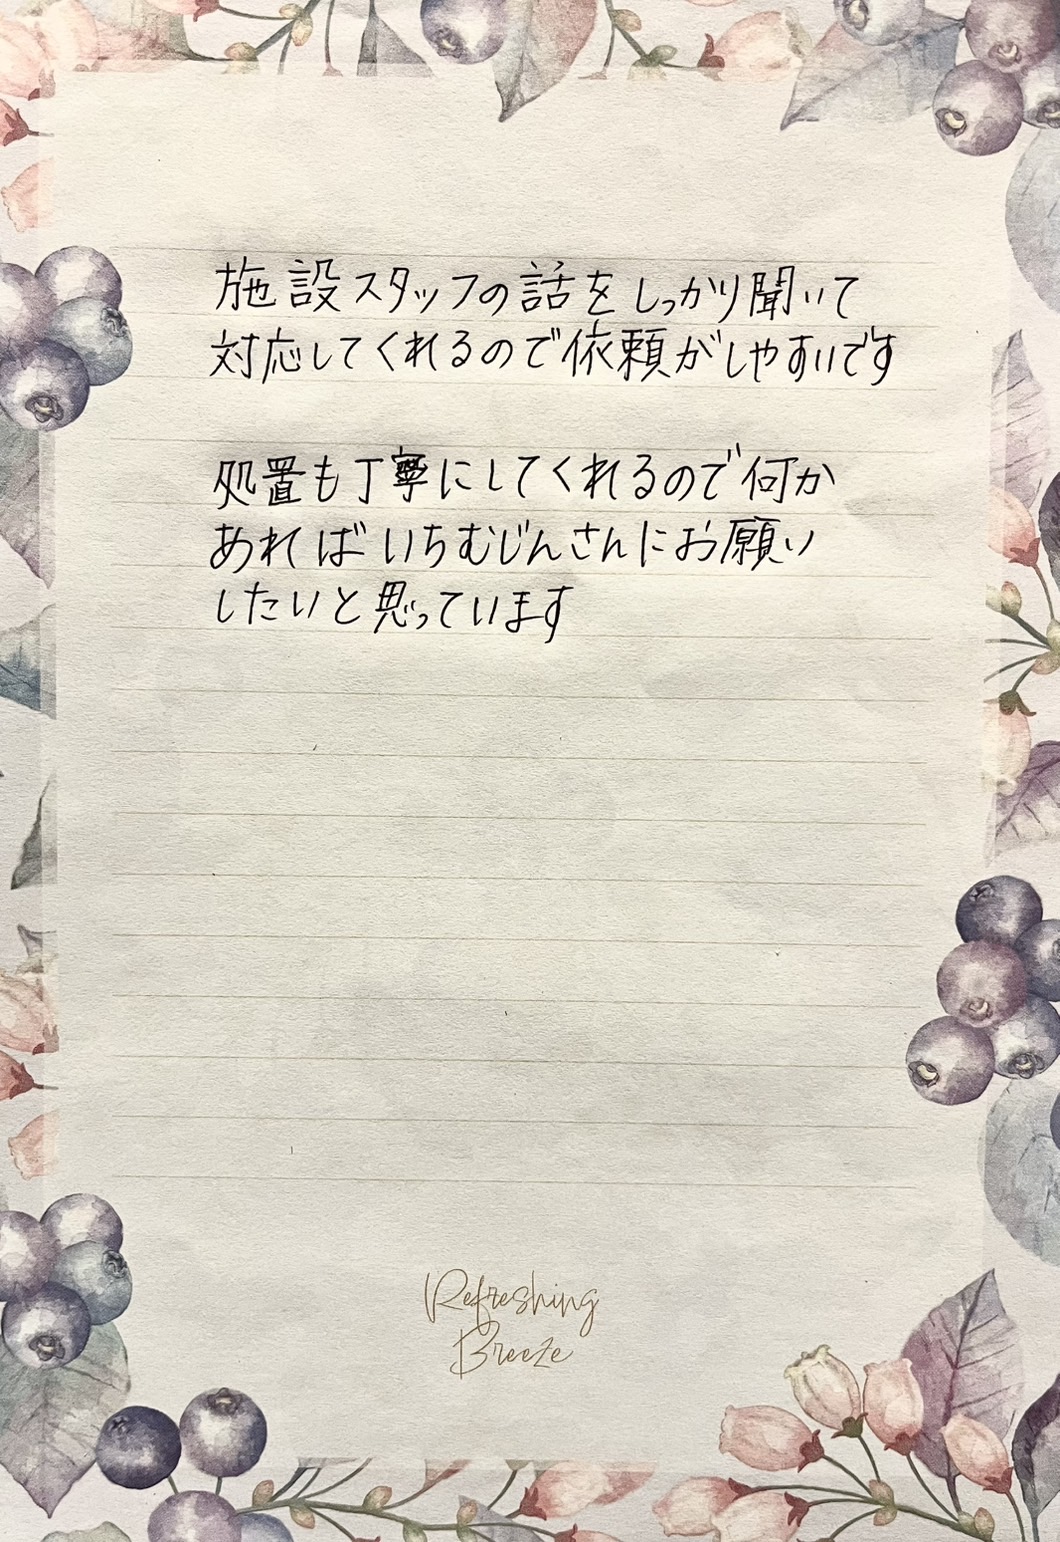 施設スタッフの話をしっかり聞いて
対応してくれるので依頼がしやすいです
処置も丁寧にしてくれるので何か
あれば いちむじんさんにお願い
したいと思っています
Refreshing
Breeze